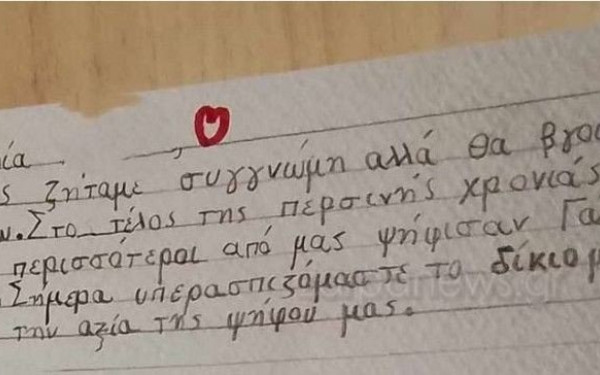 ία
ς ζητάμε συγγνώμη αλλά θα βγου
ν. Στο τέλος της περσινής χρονιάς
περισσότεροι από μας ψήφισαν Γα
Σήμερα υπερασπιζόμαστε το δίκιο μ
την αξία της ψήφου μας.